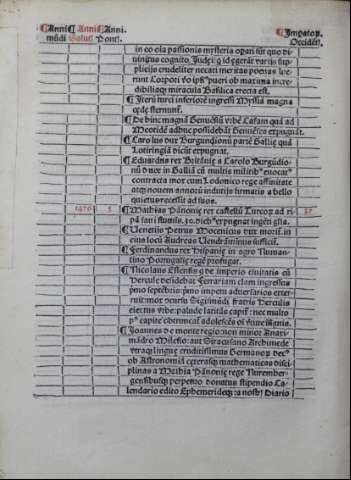 Anni Anni Anni. Impator.
mūdi Salut Pont. Occidēt.
in eo ola passionis mysteria opari sūt quo di
uinitus cognito, Judei q id egerāt variis sup
plicijs crudeliter necati meritas penas lue
runt Corpori ꝟo ipsi pueri ob maxima incre
dibiliaq; miracula Basilica erecta est.
¶ Iterū turci inferiorē ingressi Myssiā magna
cede sternunt.
¶ De hinc magnā Genuēsiū vrbē Cafam quā ad
Meotidē adhuc possidebāt Genuēses expugnāt.
¶ Carolus dux Burgundionū partē Galliç quā
Lotiringiā dicūt expugnat.
¶ Eduardus rex Britānię a Carolo Burgūdio-
nū duce in Galliā cū multis militib' euocat'
contracta mox cum Lodouico rege affinitate
atq; nouem annorū indutijs firmatis a bello
quietus recessit ad suos.
1476 5 ¶ Mathias Pānonię rex castellū Turcoꝝ ad ri- 37
pā saui situatū, 30. dieb' expugnat ingēti glia.
¶ Uenetijs Petrus Mocenicus dux morit. in
eius locū Andreas Uendraminus sufficit.
¶ Ferdinandus rex Hispanię in agro Numan-
tino Portugalię regē profugat.
¶ Nicolaus Estensis q de imperio ciuitatis cū
Hercule desidebat Ferrariam clam ingressus
prio septēbris: prio impetu aduersarios exter
ruit: mox
electus vrbe: palude latitās capit: nec multo
p' capite obtruncat' adolescēs
¶ Joannes de monte regio: non minor Anaxi
mādro Milesio: aut Siracusano Archimede
vtraq; lingue eruditissimus Germanoꝝ dec'
ob Astronomiā ceterasq; mathematicas disci
plinas a Mathia Pānonię rege Nurember-
gensibusq; perpetuo donatus stipendio Ca-
lendario edito Ephemerideq; a nostri Diario